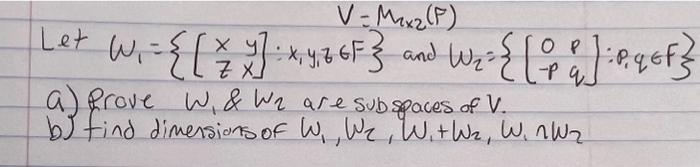 V = M₂ₓ₂(F)
Let W₁ = {[x y; z x] : x, y, z ∈ F} and W₂ = {[0 p; -p q] : p, q ∈ F}
a) Prove W₁ & W₂ are subspaces of V.
b) find dimensions of W₁, W₂, W₁+W₂, W₁∩W₂